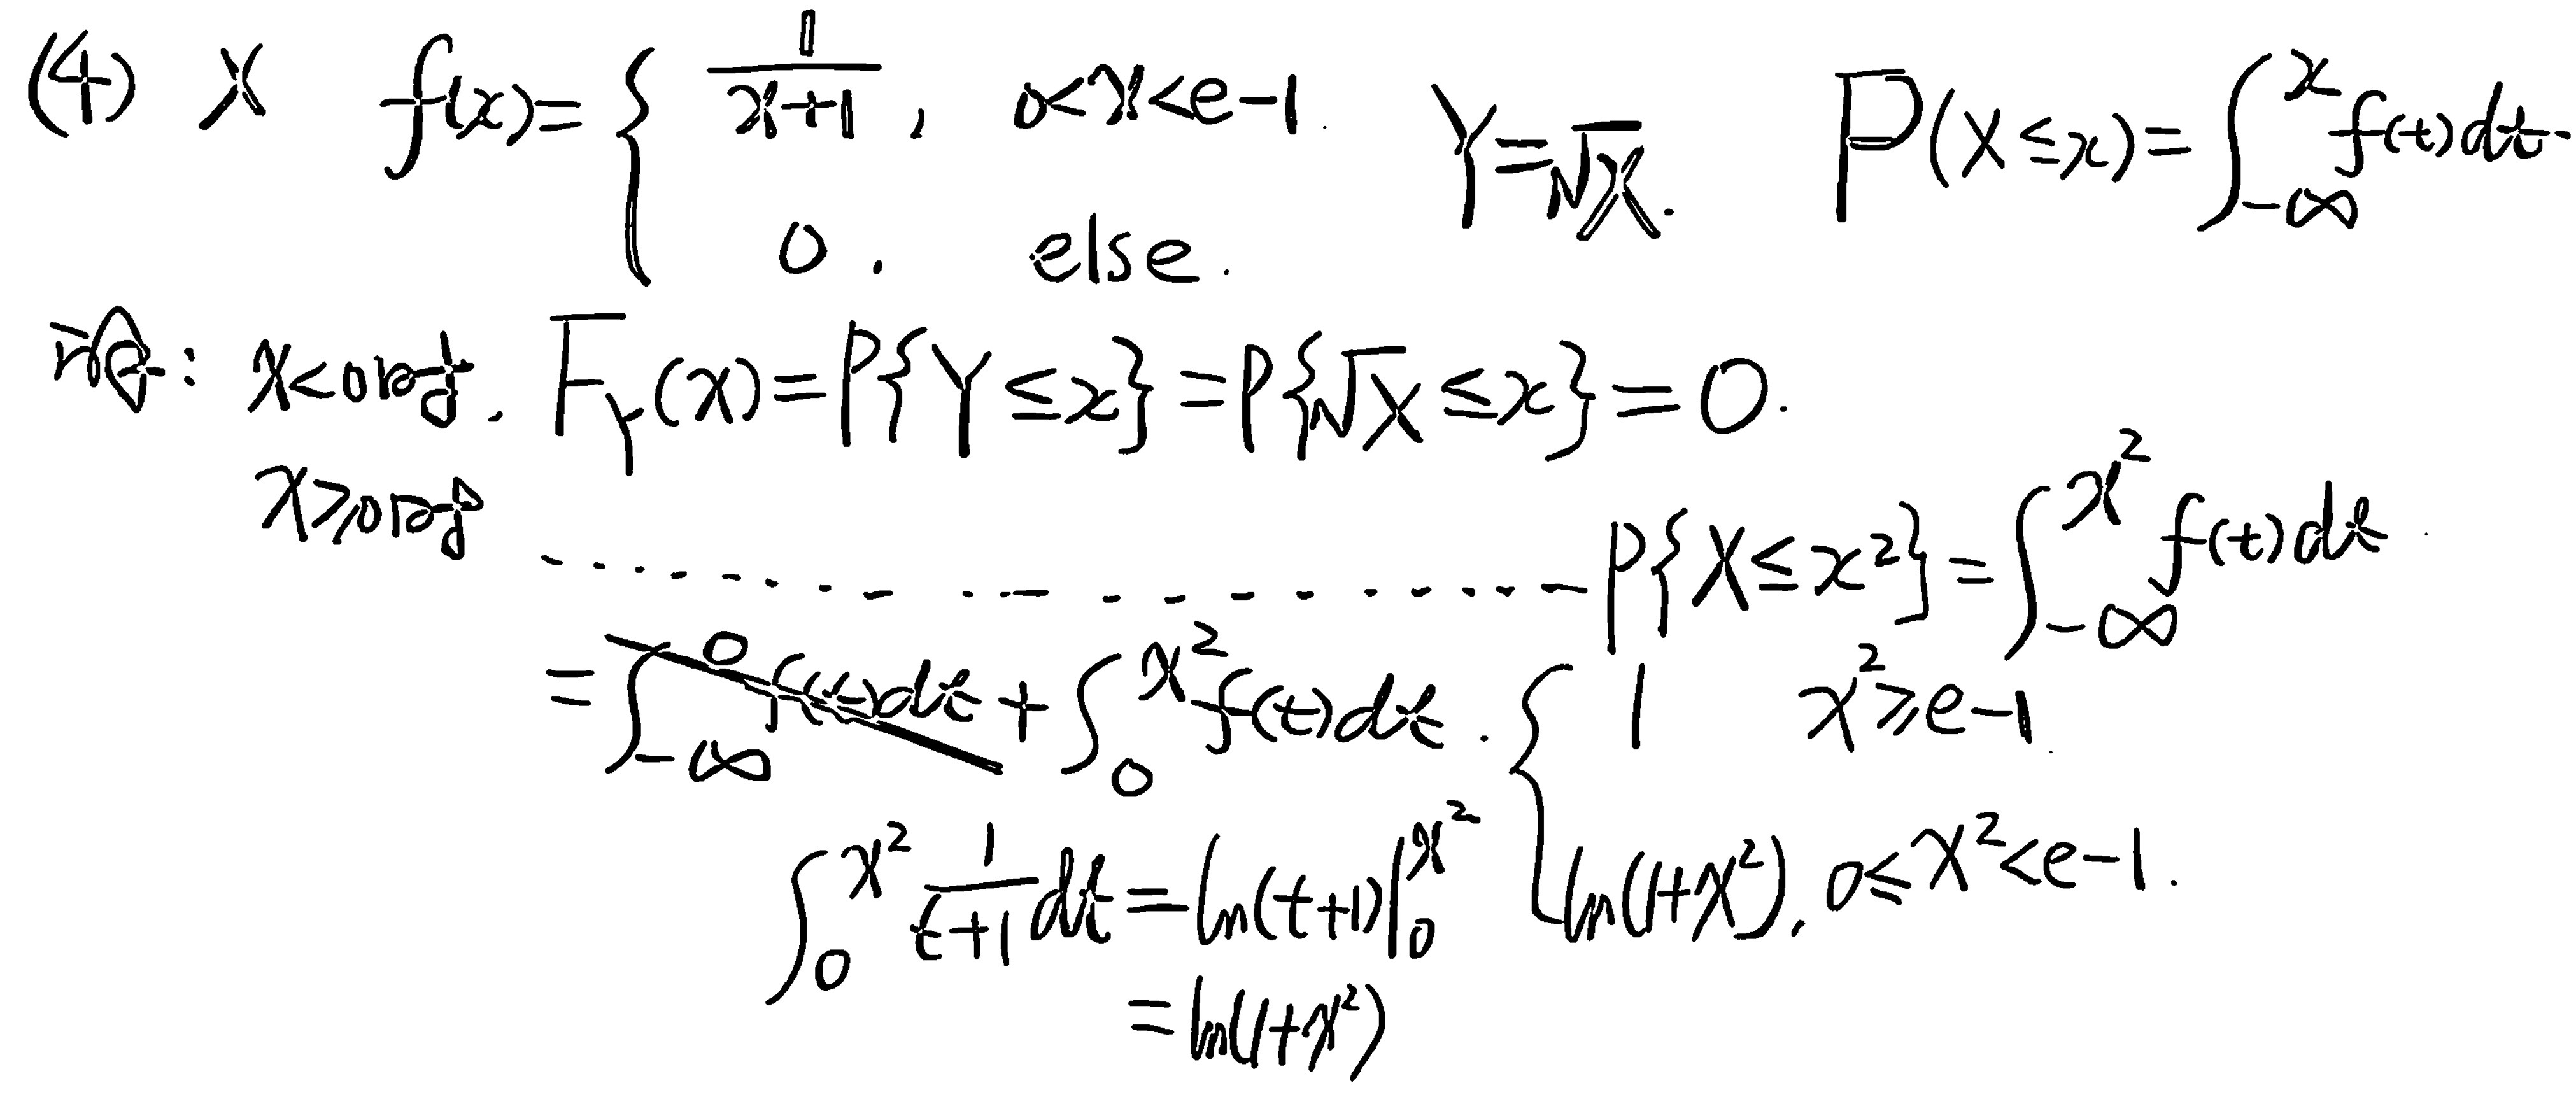 (4) X f(x)={ 1/(x+1), 0<x<e-1. Y=√X. P(X≤x)=∫_{-∞}^{x} f(t)dt.
0. else.
x<0时. F_Y(x)=P{Y≤x}=P{√X≤x}=0.
x≥0时
P{X≤x²}=∫_{-∞}^{x²} f(t)dt
=∫_{-∞}^{0} f(t)dt+∫_{0}^{x²} f(t)dt. { 1 x²≥e-1
ln(1+x²). 0≤x²<e-1.
∫_{0}^{x²} 1/(t+1) dt=ln(t+1)|_{0}^{x²}
=ln(1+x²)